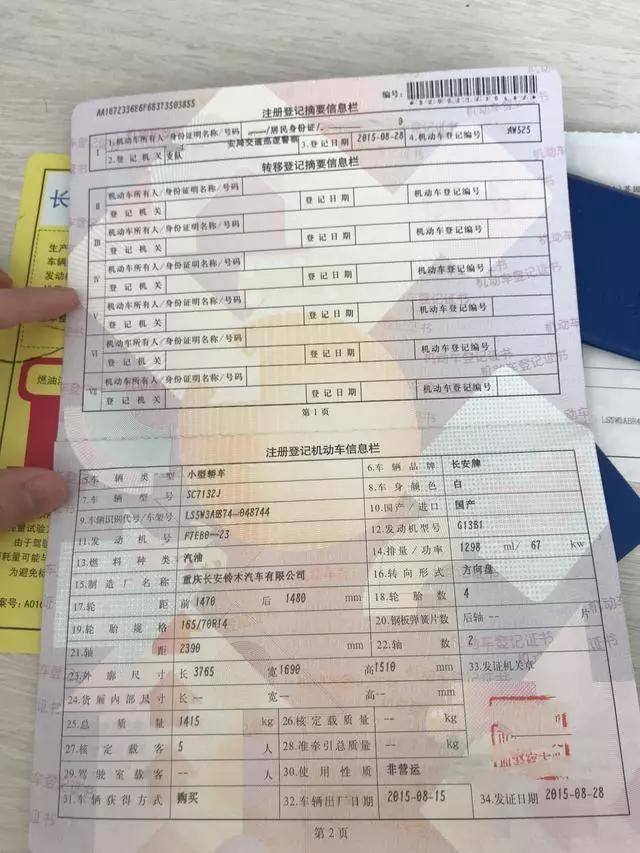 AA1672336E6F683T3503855
编号:
注册登记摘要信息栏
I
1.机动车所有人/身份证明名称/号码
/居民身份证/
2.登记机关
安局交通巡逻警察
支队
3.登记日期
2015-08-28
4.机动车登记编号
AW525
转移登记摘要信息栏
II 机动车所有人/身份证明名称/号码
登记机关 登记日期 机动车登记编号
III 机动车所有人/身份证明名称/号码
登记机关 登记日期 机动车登记编号
IV 机动车所有人/身份证明名称/号码
登记机关 登记日期 机动车登记编号
V 机动车所有人/身份证明名称/号码
登记机关 登记日期 机动车登记编号
VI 机动车所有人/身份证明名称/号码
登记机关 登记日期 机动车登记编号
VII 机动车所有人/身份证明名称/号码
登记机关 登记日期 机动车登记编号
第1页
注册登记机动车信息栏
5.车辆类型 小型轿车 6.车辆品牌 长安牌
7.车辆型号 SC7132J 8.车身颜色 白
9.车辆识别代号/车架号 10.国产/进口 国产
11.发动机号 12.发动机型号 G13B1
13.燃料种类 汽油 14.排量/功率 1298 ml/ 67 kw
15.制造厂名称 重庆长安铃木汽车有限公司 16.转向形式 方向盘
17.轮距 前 1470 后 1480 mm 18.轮胎数 4
19.轮胎规格 165/70R14 20.钢板弹簧片数 后轴 -- 片
21.轴距 2390 mm 22.轴数 2
23.外廓尺寸 长 3765 宽 1690 高 1510 mm 33.发证机关章
24.货厢内部尺寸 长 -- 宽 -- 高 -- mm
25.总质量 1415 kg 26.核定载质量 -- kg
27.核定载客 5 人 28.准牵引总质量 -- kg
29.驾驶室载客 -- 人 30.使用性质 非营运
31.车辆获得方式 购买 32.车辆出厂日期 2015-08-15 34.发证日期 2015-08-28
第2页
机动车登记证书
长
生产
车辆
发动
燃油